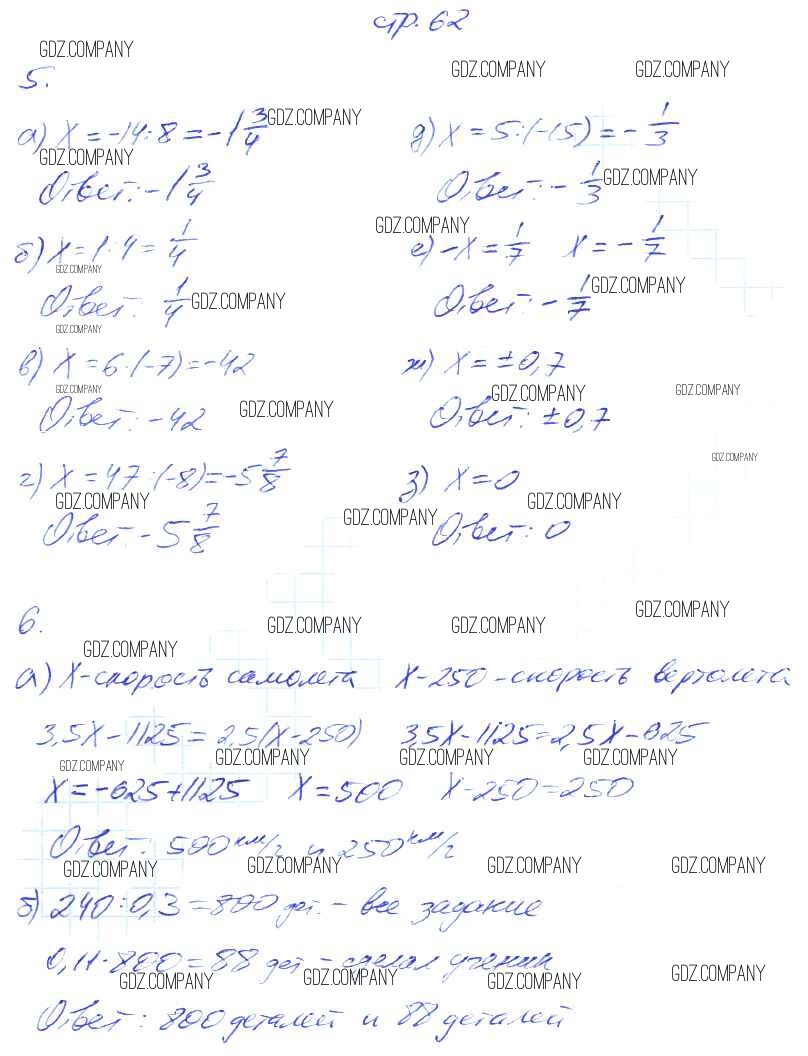 стр. 62
GDZ.COMPANY
GDZ.COMPANY GDZ.COMPANY
5.
а) X = -14:8 = -1 3/4 GDZ.COMPANY
GDZ.COMPANY
Ответ: -1 3/4
б) X = 1:4 = 1/4
GDZ.COMPANY
Ответ: 1/4 GDZ.COMPANY
GDZ.COMPANY
в) X = 6·(-7) = -42
GDZ.COMPANY
Ответ: -42 GDZ.COMPANY
г) X = 47:(-8) = -5 7/8
GDZ.COMPANY
Ответ: -5 7/8 GDZ.COMPANY
д) X = 5:(-15) = - 1/3
Ответ: - 1/3 GDZ.COMPANY
GDZ.COMPANY
е) -X = 1/7 X = - 1/7
Ответ: - 1/7 GDZ.COMPANY
ж) X = ±0,7
GDZ.COMPANY GDZ.COMPANY
Ответ: ±0,7
GDZ.COMPANY
з) X = 0
GDZ.COMPANY
Ответ: 0
6.
GDZ.COMPANY GDZ.COMPANY GDZ.COMPANY
GDZ.COMPANY
а) X - скорость самолета X-250 - скорость вертолета
3,5X - 1125 = 2,5(X-250) 3,5X-1125=2,5X-625
GDZ.COMPANY GDZ.COMPANY GDZ.COMPANY GDZ.COMPANY
X = -625+1125 X = 500 X-250=250
Ответ: 500 км/г и 250 км/г
GDZ.COMPANY GDZ.COMPANY GDZ.COMPANY GDZ.COMPANY
б) 240:0,3 = 800 дет. - все задание
0,11·800 = 88 дет - сделал ученик
GDZ.COMPANY GDZ.COMPANY GDZ.COMPANY GDZ.COMPANY
Ответ: 800 деталей и 88 деталей